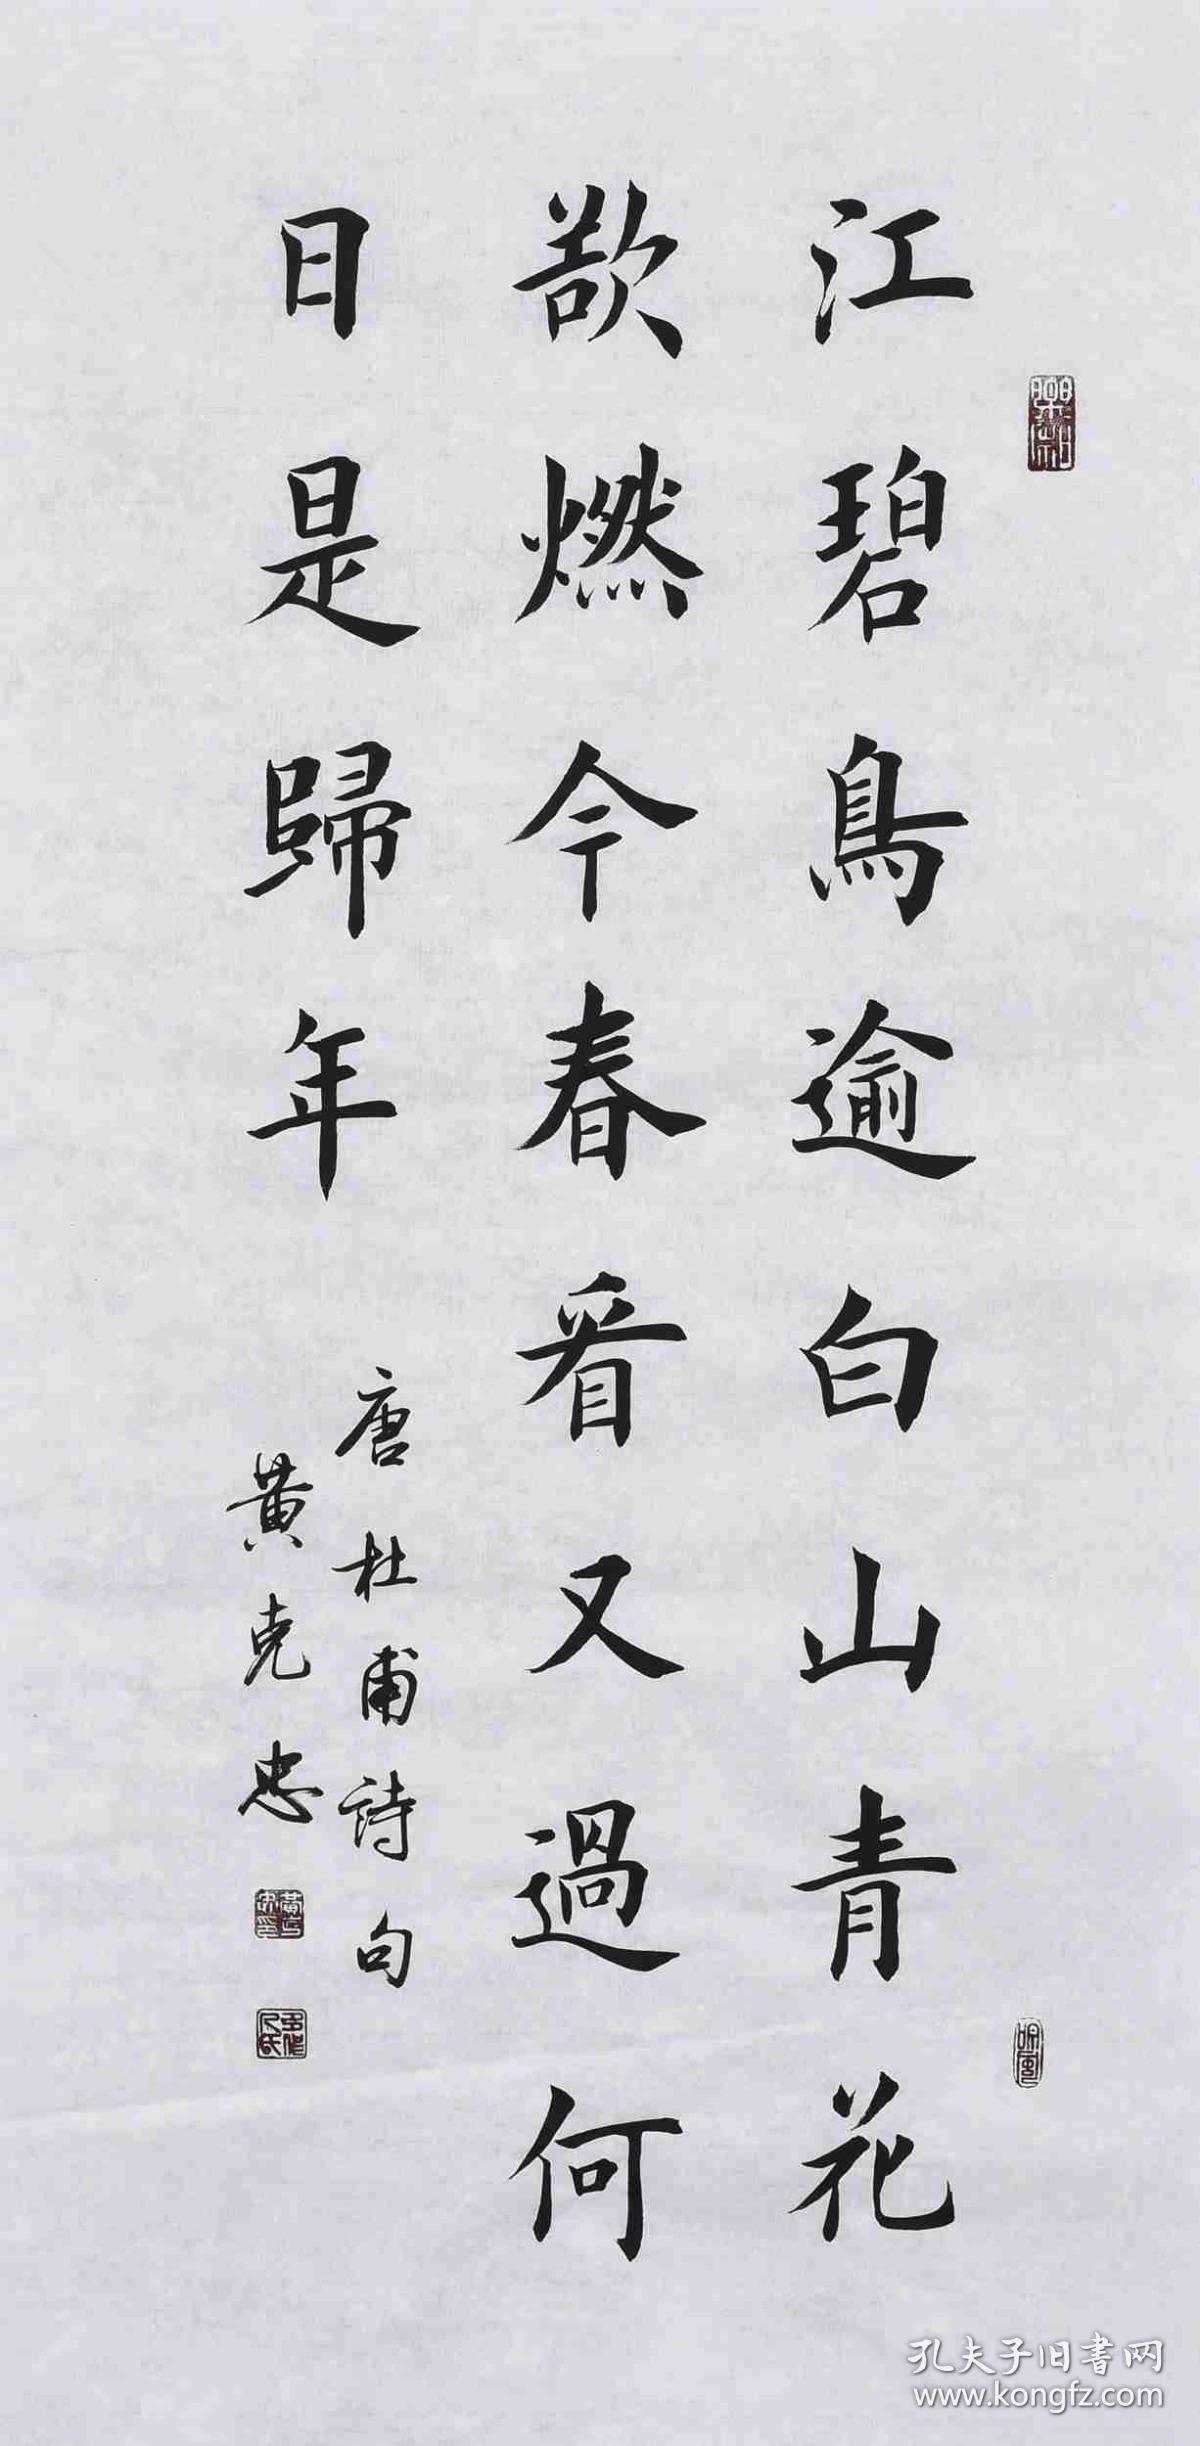 江碧鳥逾白山青花
欲燃今春看又過何
日是歸年
唐杜甫詩句
黄克忠
孔夫子旧書网
www.kongfz.com